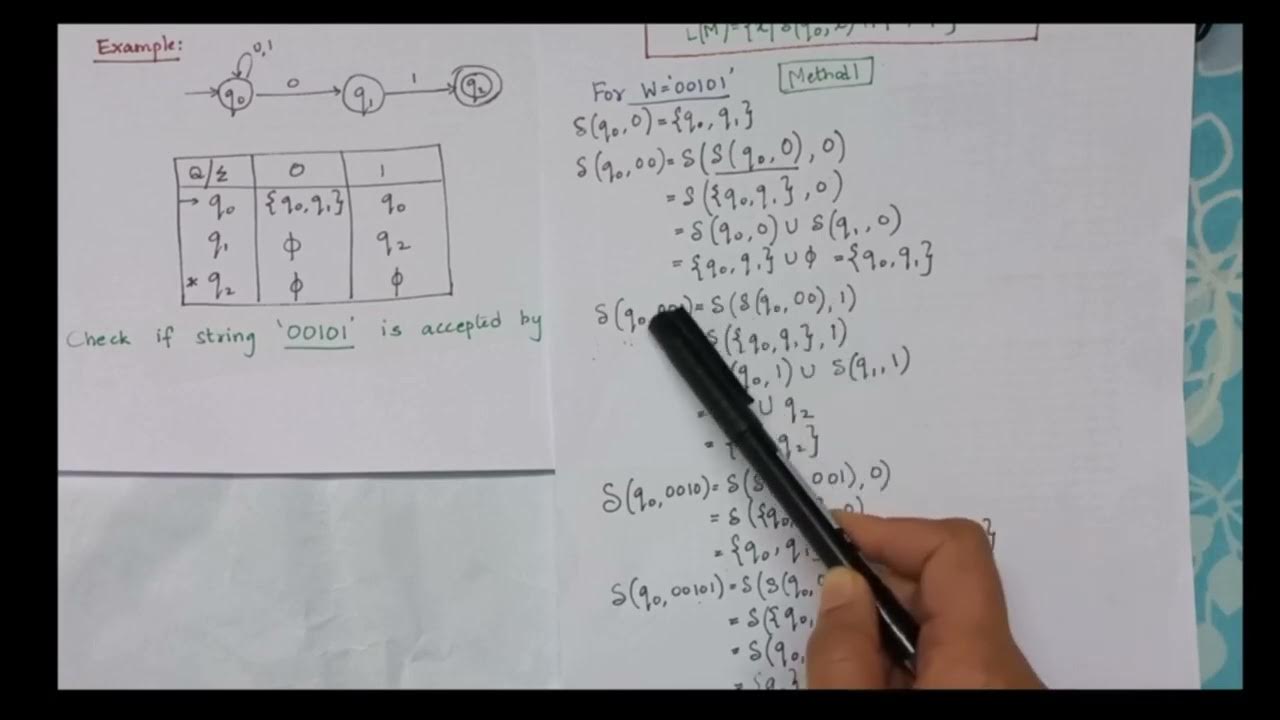 Example:
0,1
q₀ 0 q₁ 1 q₂
Q/Σ 0 1
→ q₀ {q₀,q₁} q₀
q₁ ϕ q₂
* q₂ ϕ ϕ
Check if string '00101' is accepted by
For W='00101'
Method 1
δ(q₀,0)={q₀,q₁}
δ(q₀,00)=δ(δ(q₀,0),0)
=δ({q₀,q₁},0)
=δ(q₀,0)∪δ(q₁,0)
={q₀,q₁}∪ϕ={q₀,q₁}
δ(q₀, =δ(δ(q₀,00),1)
δ({q₀,q₁},1)
(q₀,1)∪δ(q₁,1)
= ∪ q₂
={ q₂}
δ(q₀,0010)=δ(δ 001),0)
=δ({q₀
={q₀,q₁ }
δ(q₀,00101)=δ(δ(q₀,
=δ({q₀,
=δ(q₀,
={q₀